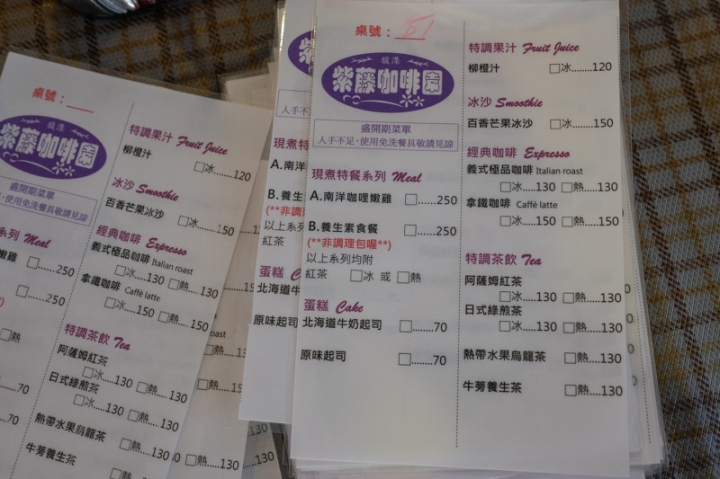 桌號：51
紫藤咖啡園
盛開期菜單
人手不足，使用免洗餐具敬請見諒
現煮特餐系列 Meal
A.南洋咖哩嫩雞 □......250
B.養生素食餐 □......250
(**非調理包喔**)
以上系列均附
紅茶 □冰 或 □熱
蛋糕 Cake
北海道牛奶起司 □......70
原味起司 □......70
特調果汁 Fruit Juice
柳橙汁 □冰......120
冰沙 Smoothie
百香芒果冰沙 □冰......150
經典咖啡 Expresso
義式極品咖啡 Italian roast
□冰......130 □熱......130
拿鐵咖啡 Caffè latte
□冰......150 □熱......150
特調茶飲 Tea
阿薩姆紅茶
□冰......130 □熱......130
日式綠煎茶
□冰......130 □熱......130
熱帶水果烏龍茶 □熱......130
牛蒡養生茶 □熱......130
桌號：
紫藤咖啡園
盛開期菜單
人手不足，使用免洗餐具敬請見諒
現煮特餐系列
A.南洋
B.養生
(**非調
以上系
紅茶
蛋糕
北海道牛
原味起司
桌號：
紫藤咖啡園
盛開期菜單
不足，使用免洗餐具敬請見諒
系列 Meal
嫩雞 □......250
□......250
......70
......70
特調果汁 Fruit Juice
柳橙汁 □冰......120
冰沙 Smoothie
百香芒果冰沙 □冰......150
經典咖啡 Expresso
義式極品咖啡 Italian roast
□冰......130 □熱......130
拿鐵咖啡 Caffè latte
□冰......150 □熱......150
特調茶飲 Tea
阿薩姆紅茶
□冰......130 □熱......130
日式綠煎茶
□冰......130 □熱......130
熱帶水果烏龍茶 □熱......130
牛蒡養生茶 □熱......130